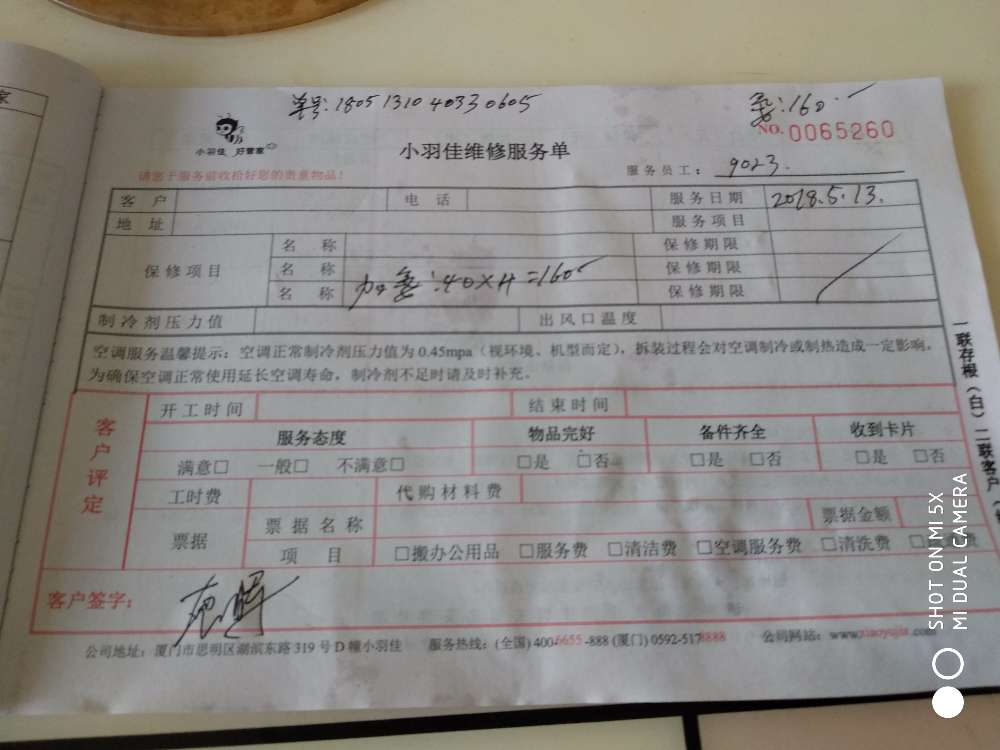 家
单号:1805131040330605
160.
小羽佳 好管家
NO. 0065260
小羽佳维修服务单
请您于服务前收拾好您的贵重物品!
服务员工: 9023.
客户 电话 服务日期 2018.5.13.
地址 服务项目
保修项目 名称 保修期限
名称 加氟:40×4=160 保修期限
名称 保修期限
制冷剂压力值 出风口温度
空调服务温馨提示:空调正常制冷剂压力值为0.45mpa(视环境、机型而定),拆装过程会对空调制冷或制热造成一定影响。
为确保空调正常使用延长空调寿命,制冷剂不足时请及时补充。
客户评定
开工时间 结束时间
服务态度 物品完好 备件齐全 收到卡片
满意□ 一般□ 不满意□ □是 □否 □是 □否 □是 □否
工时费 代购材料费
票据 票据名称 票据金额
项目 □搬办公用品 □服务费 □清洁费 □空调服务费 □清洗费
客户签字:
公司地址:厦门市思明区湖滨东路319号D幢小羽佳 服务热线:(全国)400-6655-888 (厦门)0592-5178888 公司网站:www.xiaoyujia.com
一联存根(白)二联客户
SHOT ON MI 5X
MI DUAL CAMERA